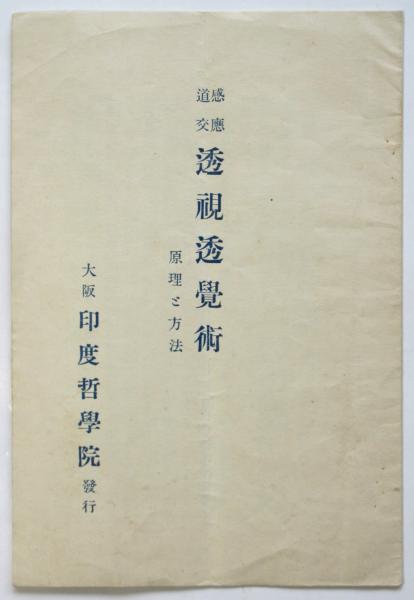 感應道交 透視透覺術
原理と方法
大阪 印度哲學院 發行